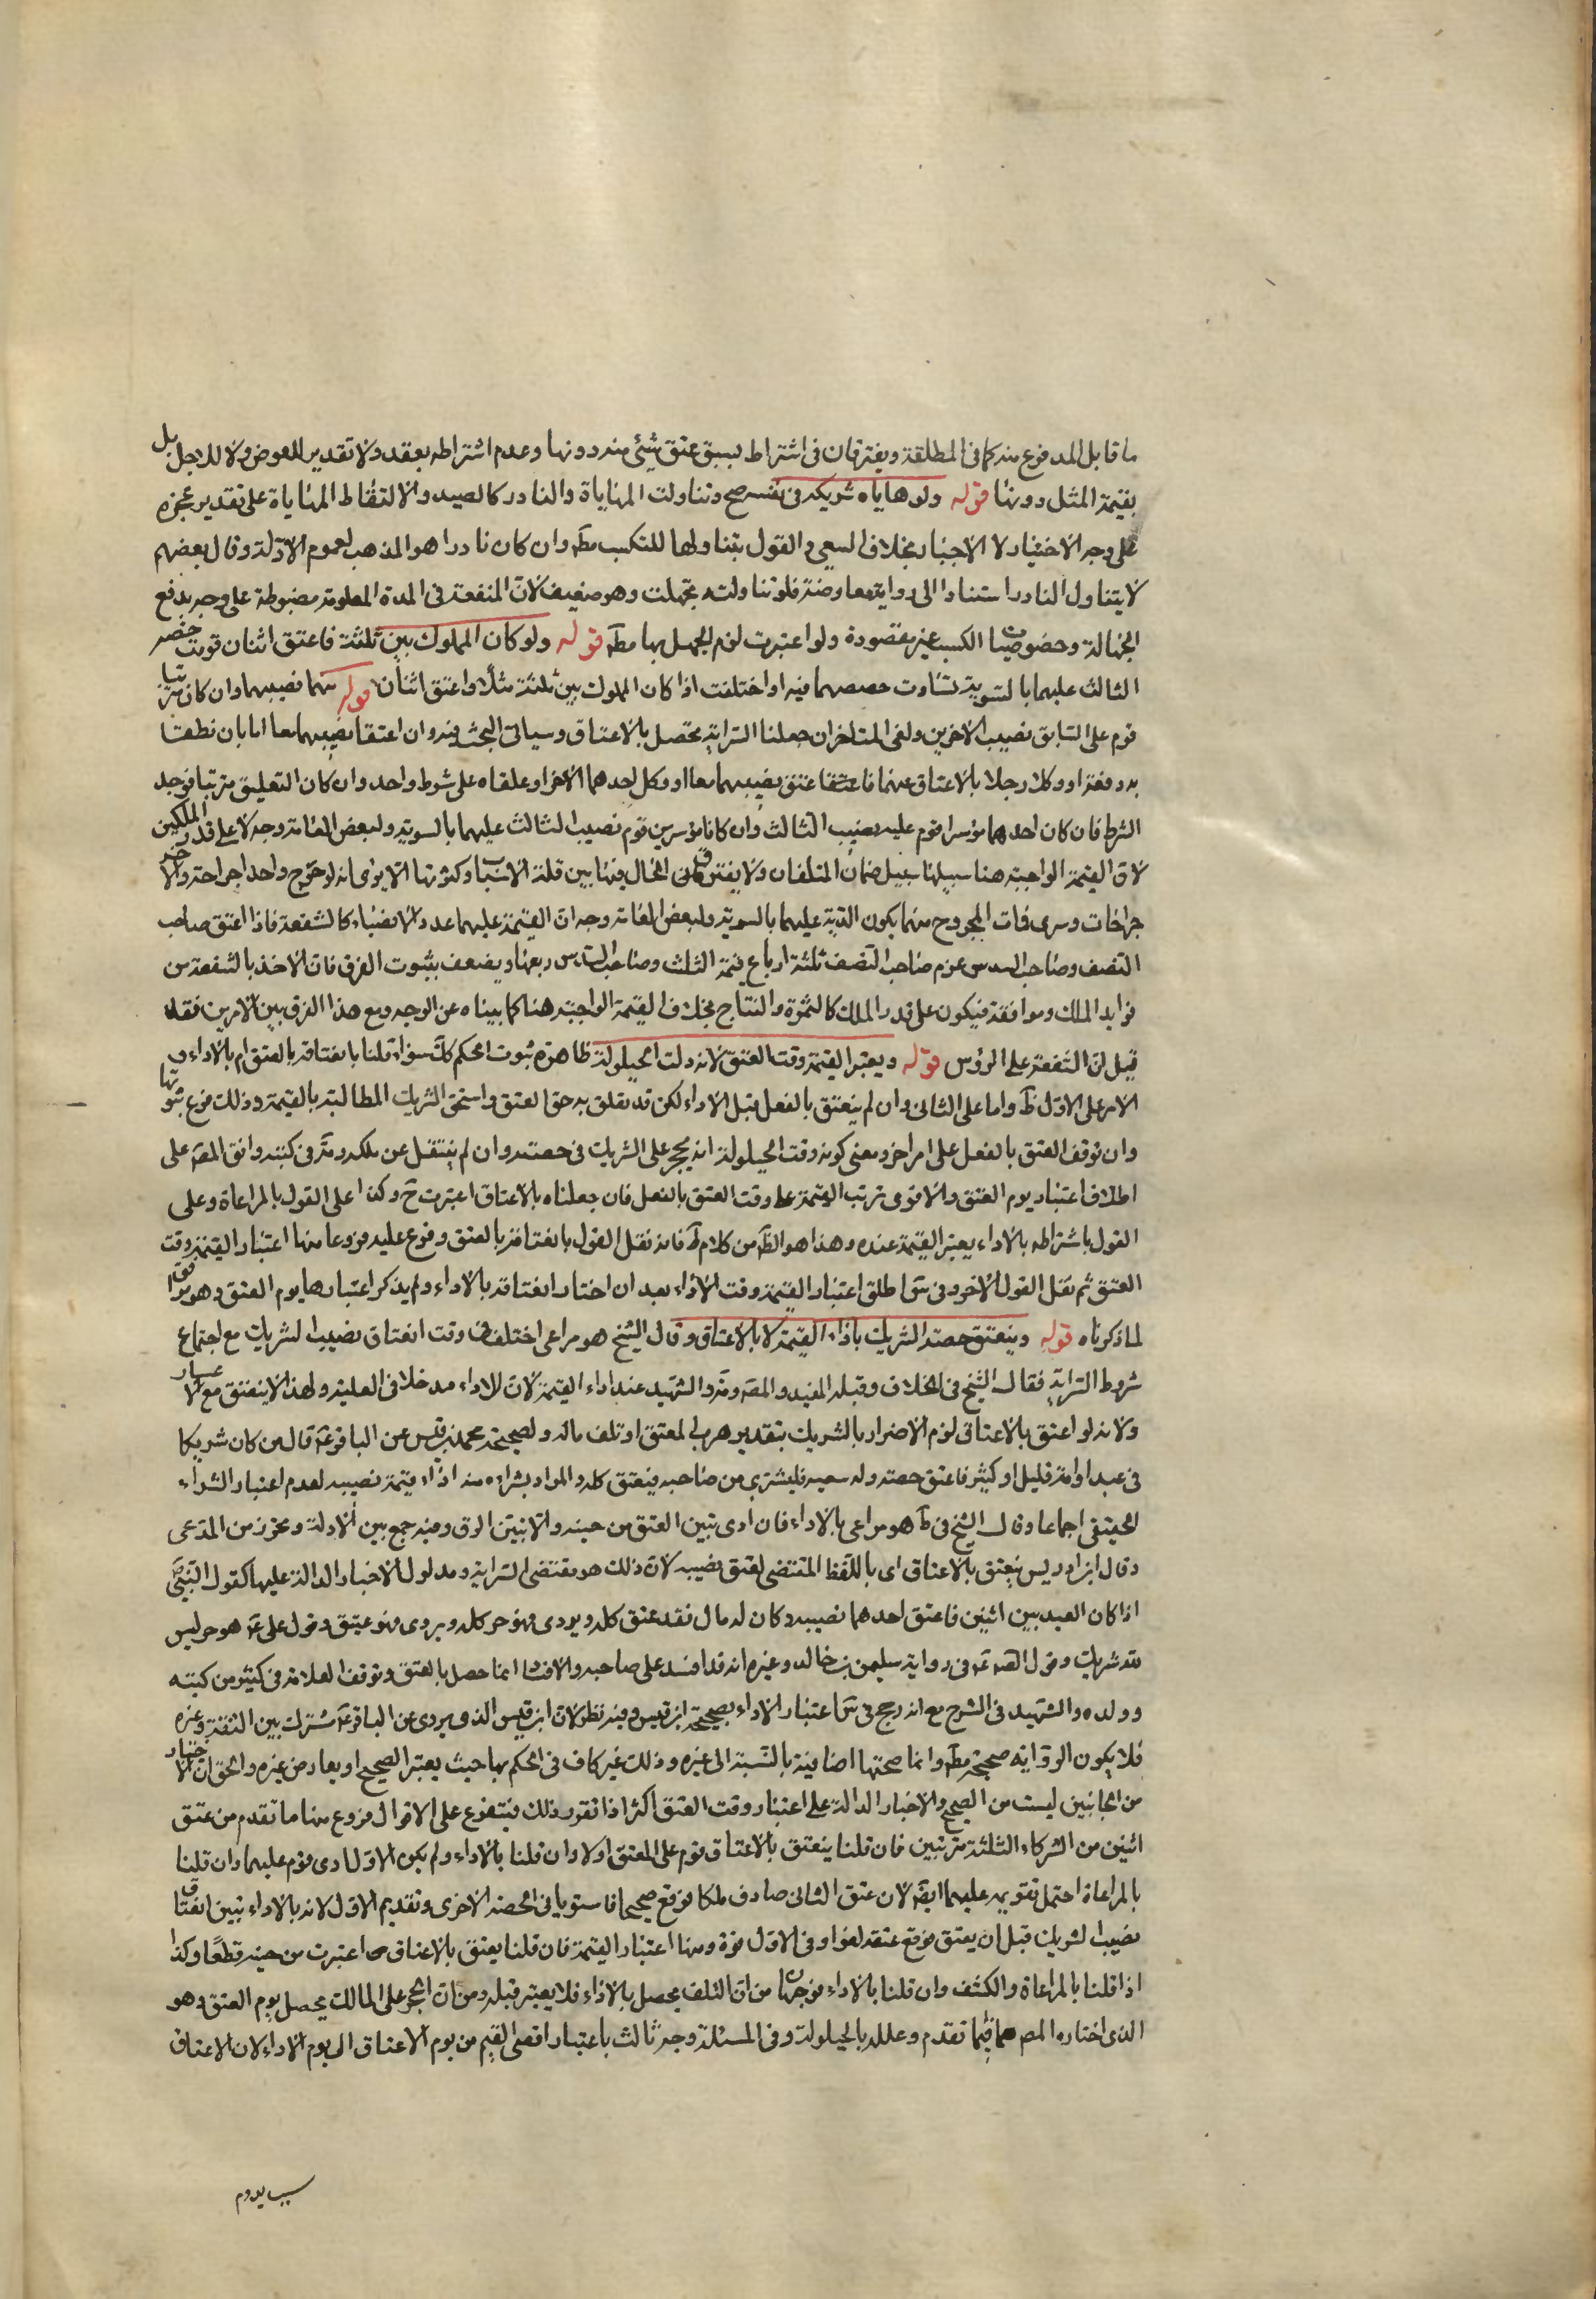 ما قابل المدفوع منه كما في المطلقة ويفترقان في اشتراط سبق عتق شيئ منه دونها وعدم اشتراطه بعقد ولا تقدير للعوض ولا للاجل بل
بقيمة المثل دونها قوله ولو هاياه شريكه في نفسه صح وتناولت المهاياة والنادر كالصيد والالتقاط المهاياة على تقدير عجزه
على وجه الاختيار لا الاجبار بخلاف السعي والقول بتناولها للتكسب مطه وان كان نادرا هو المذهب لعموم الادلة وقال بعضهم
لا يتناول النادر استنادا الى رواية معاوضة فلو تناولته تجهلت وهو ضعيف لان المنفعة في المدة المعلومة مضبوطة على وجه يدفع
الجهالة وخصوصيات الكسب غير مقصودة ولو اعتبرت لزم الجهل بها مطه قوله ولو كان المملوك بين ثلثة فاعتق اثنان قومت حصة
الثالث عليهما بالسوية تساوت حصصهما فيه او اختلفت اذا كان المملوك بين ثلثة مثلا واعتق اثنان قوله منهما نصيبهما وان كان مترتبا
قوم على السابق نصيب الاخرين ولغى المتاخر ان جعلنا السراية تحصل بالاعتاق وسياتي البحث فيه وان اعتقا نصيبهما معا اما بان نطقا
به دفعة او وكلا رجلا بالاعتاق عنهما فاعتقا عتق نصيبهما معا او وكل احدهما الاخر او علقاه على شرط واحد وان كان التعليق مترتبا فوجد
الشرط فان كان احدهما موسرا قوم عليه نصيب الثالث وان كانا موسرين قوم نصيب الثالث عليهما بالسوية ولبعض العامة وجه لا على قدر الملكين
لان القيمة الواجبة هنا سبيلها سبيل ضمان المتلفات ولا يفترق الحال فيها بين قلة الاسباب وكثرتها الا يرى انه لو جرح واحد جراحة والاخر
جراحات وسرى فات المجروح منهما يكون الدية عليهما بالسوية ولبعض العامة وجه ان القيمة عليهما عدد الانصباء كالشفعة فاذا اعتق صاحب
النصف وصاحب السدس غرم صاحب النصف ثلثة ارباع قيمة الثلث وصاحب السدس ربعها ويضعف بثبوت الفرق فان الاخذ بالشفعة من
فوايد الملك ومرافقه فيكون على قدر الملك كالثمرة والنتاج بخلاف القيمة الواجبة هنا كما بيناه عن الوجه ومع هذا الفرق بين الامرين فقد
قيل ان الشفعة على الرؤس قوله ويعتبر القيمة وقت العتق لانه وقت الحيلولة ظاهره ثبوت الحكم كك سواء قلنا بانعتاقه بالعتق ام بالاداء و
الامر على الاول ظ واما على الثاني وان لم ينعتق بالفعل قبل الاداء لكن قد تعلق به حق العتق واستحق الشريك المطالبة بالقيمة وذلك فرع ثبوتها
وان توقف العتق بالفعل على امر اخر ومعنى كونه وقت الحيلولة انه يحجر على الشريك في حصته وان لم ينتقل عن ملكه ومه في كتبه وافق المصه على
اطلاق اعتبار يوم العتق والاقوى ترتب القيمة على وقت العتق بالفعل فان جعلناه بالاعتاق اعتبرت ح وكذا على القول بالمراعاة وعلى
القول باشتراطه بالاداء يعتبر القيمة عنده وهذا هو الظه من كلام ط فانه نقل القول بانعتاقه بالعتق وفرع عليه فروعا منها اعتبار القيمة وقت
العتق ثم نقل القول الاخر وفي س اطلق اعتبار القيمة وقت الاداء بعد ان اختار انعتاقه بالاداء ولم يذكر اعتبارها يوم العتق وهو موافق
لما ذكرناه قوله وينعتق حصة الشريك باداء القيمة لا بالاعتاق وقال الشيخ هو مراعى اختلف في وقت انعتاق نصيب الشريك مع اجتماع
شروط السراية فقال الشيخ في الخلاف وقبله المفيد والمصه ومه والشهيد عند اداء القيمة لان للاداء مدخلا في العلية ولهذا لا ينعتق مع الاعسار
ولانه لو اعتق بالاعتاق لزم الاضرار بالشريك بتقدير هرب المعتق او تلف ماله ولصحيحة محمد بن قيس عن الباقر ع قال من كان شريكا
في عبد او امة قليل او كثير فاعتق حصته وله سعة فليشتره من صاحبه فيعتق كله والمراد بشراءه منه اداء قيمة نصيبه لعدم اعتبار الشراء
الحقيقي اجماعا وقال الشيخ في ط هو مراعى بالاداء فان ادى تبين العتق من حينه والا تبين الرق وفيه جمع بين الادلة وتحرز من المدعى
وقال ابن ادريس ينعتق بالاعتاق اي باللفظ المقتضي لعتق نصيبه لان ذلك هو مقتضى السراية ومدلول الاخبار الدالة عليها كقول النبي ص
اذا كان العبد بين اثنين فاعتق احدهما نصيبه وكان له مال نقد عتق كله ويروى فهو حر كله ويروى فهو عتيق وقول علي ع هو حر ليس
لله شريك وقول الصه ع في رواية سليمن بن خالد وغيره انه قد افسد على صاحبه والافساد انما حصل بالعتق وتوقف العلامة في كثير من كتبه
وولده والشهيد في الشرح مع انه رجح في س اعتبار الاداء بصحيحة ابن قيس وفيه نظر لان ابن قيس الذي يروى عن الباقر ع مشترك بين الثقة وغيره
فلا يكون الرواية صحيحة مطه وانما صحتها اضافية بالنسبة الى غيره وذلك غير كاف في الحكم بها حيث يعتبر الصحيح او يعارض غيره والحق ان الاخبار
من الجانبين ليست من الصحيح والاخبار الدالة على اعتبار وقت العتق اكثر اذا تقرر ذلك فيتفرع على الاقوال فروع منها ما تقدم من عتق
اثنين من الشركاء الثلثة مترتبين فان قلنا ينعتق بالاعتاق قوم على المعتق اولا وان قلنا بالاداء ولم يكن الاول ادى قوم عليهما وان قلنا
بالمراعاة احتمل تقويمه عليهما ايضه لان عتق الثاني صادف ملكا فوقع صحيحا فاستويا في الحصة الاخرى وتقديم الاول لانه بالاداء تبين انعتاق
نصيب الشريك قبل ان يعتق فوقع عتقه لغوا وفي الاول قوة ومنها اعتبار القيمة فان قلنا يعتق بالاعتاق اعتبرت من حينه قطعا وكذا
اذا قلنا بالمراعاة والكشف وان قلنا بالاداء فوجهان من ان التلف يحصل بالاداء فلا يعتبر قبله ومن ان الحجر على المالك يحصل يوم العتق وهو
الذي اختاره المصه فيما تقدم وعلله بالحيلولة وفي المسئلة وجه ثالث باعتبار اقصى القيم من يوم الاعتاق الى يوم الاداء لان الاعتاق
سبب يدوم